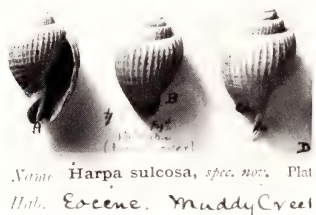 A
B
D
Name Harpa sulcosa, spec. nov. Plat
Hab. Eocene. Muddy Creek